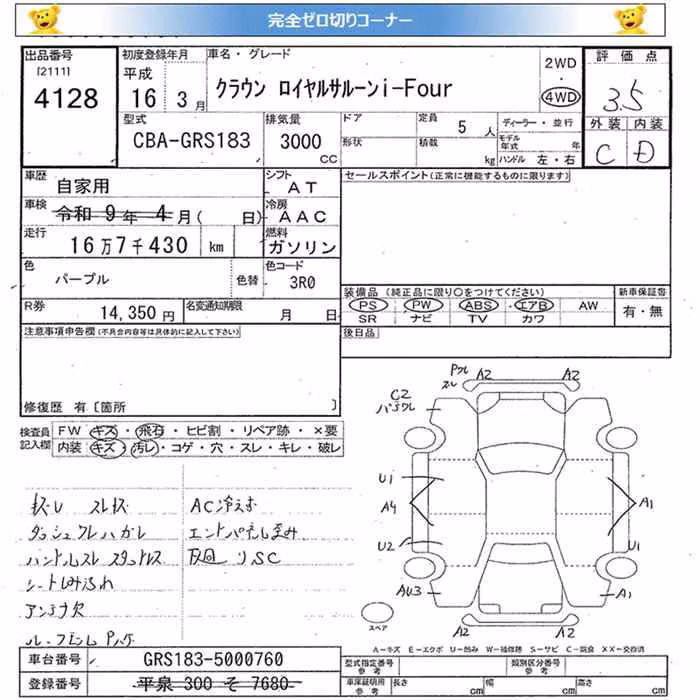 完全ゼロ切りコーナー
出品番号
[2111]
4128
初度登録年月
平成
16 3月
車名・グレード
クラウン ロイヤルサルーンi-Four
2WD
・
4WD
評価点
3.5
外装 内装
C D
型式
CBA-GRS183
排気量
3000
CC
ドア
形状
定員
5 人
積載
kg
ディーラー・並行
モデル年式 年
ハンドル 左・右
車歴
自家用
シフト
AT
車検
令和 9年 4月( 日)
冷房
AAC
走行
16万7千430 km
燃料
ガソリン
色
パープル
色替
色コード
3R0
R券
14,350円
名変通知期限
月 日
注意事項申告欄(不具合内容等は具体的に記入して下さい)
修復歴 有〔箇所 〕
セールスポイント(正常に機能するものに限ります)
装備品(純正品に限り〇をつけてください)
PS PW ABS エアB AW
SR ナビ TV カワ
新車保証書
有・無
後日品
検査員記入欄
FW キズ・飛石・ヒビ割・リペア跡・×要
内装 キズ・汚レ・コゲ・穴・スレ・キレ・破レ
ダッシュワレハガレ
ハンドルスレ スタッドレス
アンテナ欠
AC冷えお
リSC
A2 A2
C2
U1
A4
U2
AU3
A1
U1
A1
A2 A2
スペア
A-キズ E-エクボ U-凹み W-補修跡 S-サビ C-腐食 XX-交換済
車台番号
GRS183-5000760
登録番号
平泉 300 そ 7680
型式指定番号
類別区分番号
車庫証明用参考
長さ cm
幅 cm
高さ cm